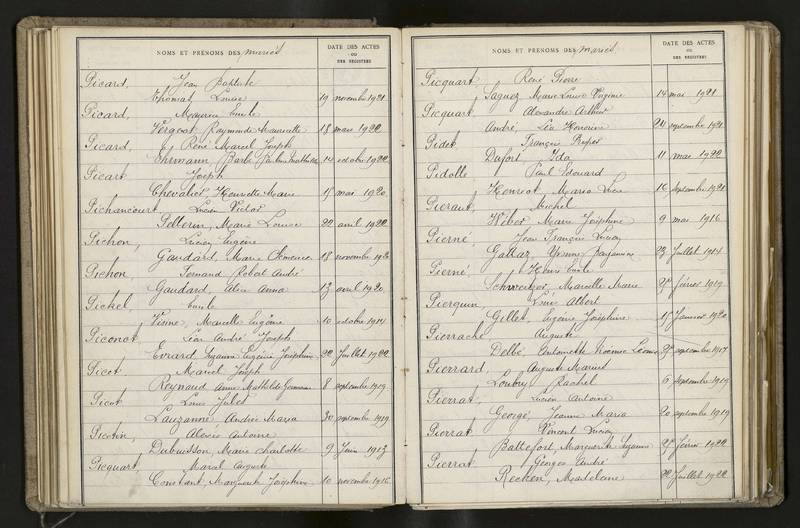 NOMS ET PRÉNOMS DES mariés
DATE DES ACTES
OU
DES REGISTRES
Picard, Jean Baptiste
Thomas, Louise 19 novembre 1921
Picard, Maurice Emile
Vergeot, Raymonde Marcelle 18 mars 1922
Picard, René Marcel Joseph
Ehrmann, Barbe 14 octobre 1922
Picart Joseph
Chevalier Henriette Marie 15 mai 1920
Pichancourt, Lucien Victor
Pellerin, Marie Louise 22 avril 1922
Pichon, Lucien Eugène
Gaudard, Marie Clémence 18 novembre
Pichon, Fernand Robert André
Gaudard, Alice Anna 17 avril 1920
Pickel, Emile
Voisine, Marcelle Eugénie 10 octobre 1914
Piconot, Léon André Joseph
Evrard, Suzanne Eugénie Joséphine 22 Juillet 1922
Picot Marcel Joseph
Reynaud Anne Mathilde Germaine 8 septembre 1919
Picot Louis Jules
Lauzanne, Andrée Maria 30 septembre 1919
Picotin, Alexis Antoine
Dubuisson, Marie Charlotte 9 Juin 1917
Picquart, Marcel Auguste
Constant, Marguerite Joséphine 10 novembre 1916
NOMS ET PRÉNOMS DES mariés
DATE DES ACTES
OU
DES REGISTRES
Picquart René Pierre
Sagnez, Marie Louise 14 mai 1921
Picquart, Alexandre Arthur
André, Léa Honorine 24 septembre 1921
Pidet François
Dufort, Ida 11 mars 1922
Pidolle Paul Edouard
Henriot, Maria 16 septembre 1921
Pieraut, Michel
Wéber Marie Joséphine 9 mai 1916
Pierné, Jean François Lucien
Gattaz, Yvonne 23 Juillet 1914
Pierné, Henri Emile
Schweizer, Marcelle Marie 25 février 1919
Pierquin, Louis Albert
Gillet, Eugénie Joséphine 15 Janvier 1920
Pierrache Auguste
Delbé, Antoinette Noémie 29 septembre 1917
Pierrard, Auguste Marius
Loubry, Rachel 6 septembre 1919
Pierrat, Lucien Antoine
George, Jeanne Maria 20 septembre 1919
Pierrat Vincent Lucien
Battefort, Marguerite Suzanne 25 février 1922
Pierrat Georges André
Reckén, Madeleine 22 Juillet 1922